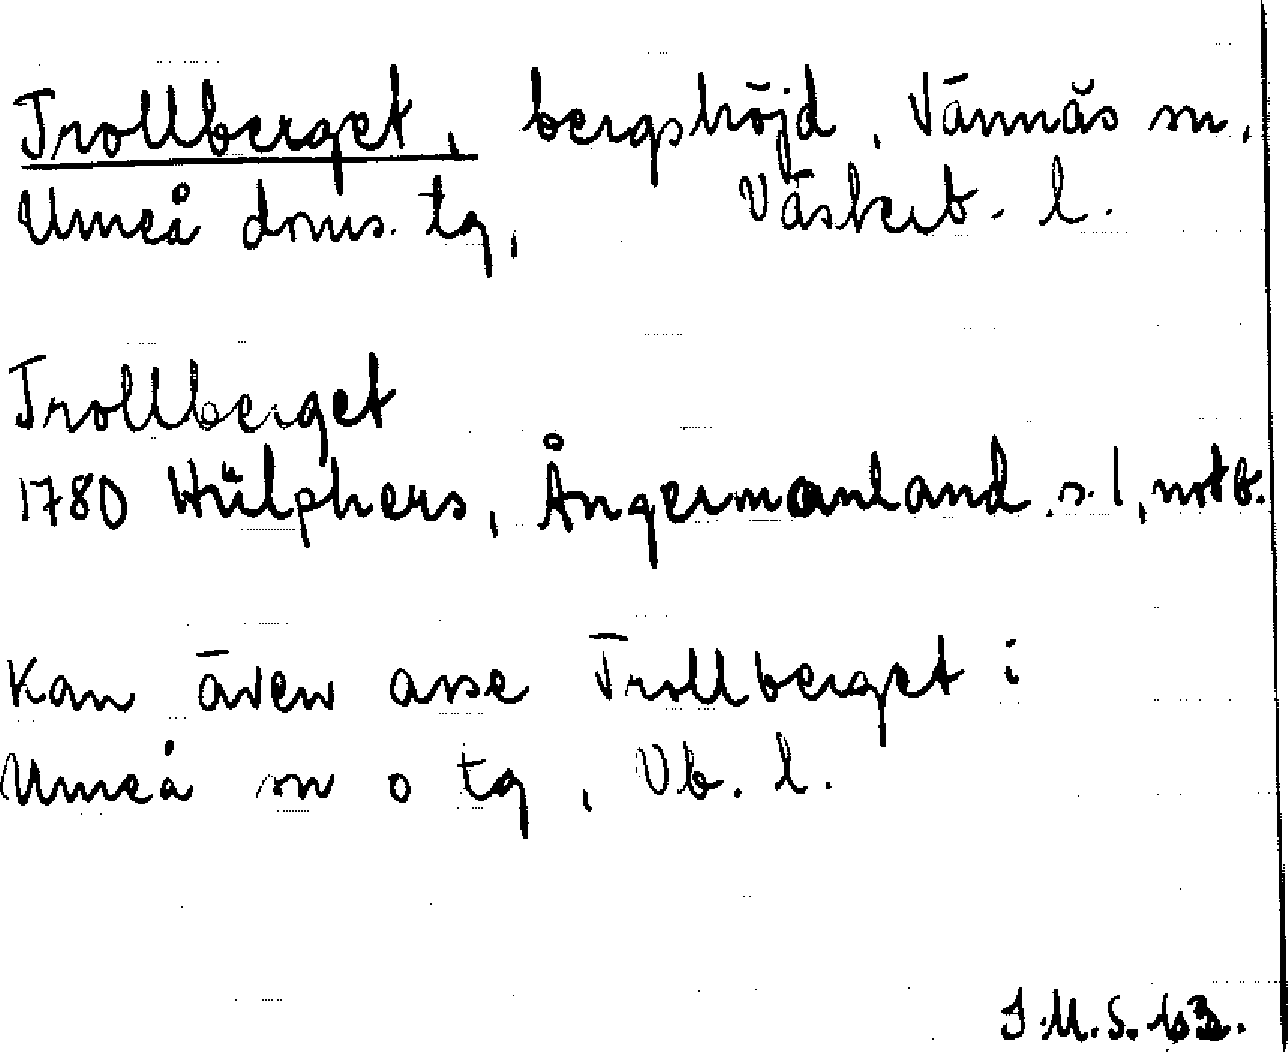 Trollberget, bergshöjd, Vännäs sn,
Umeå doms. tg, Västerb. l.
Trollberget
1780 Hülphers, Ångermanland s. 1, not b.
Kan även avse Trollberget i
Umeå sn o tg, Vb. l.
I.M.S. 63.